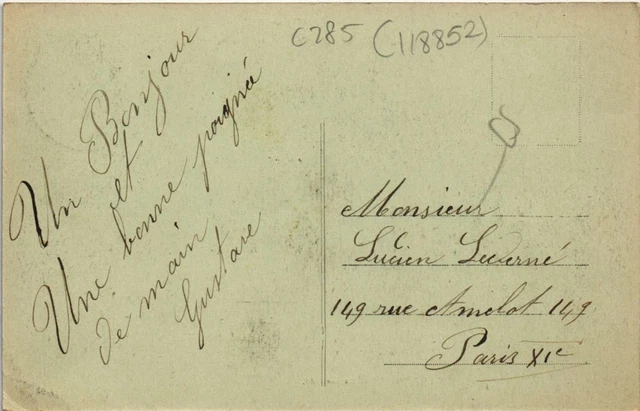 C285 (118852)
Un Bonjour
et
Une bonne poignée
de main
Gustave
Monsieur
Lucien
149 rue Amelot 149
Paris XIe